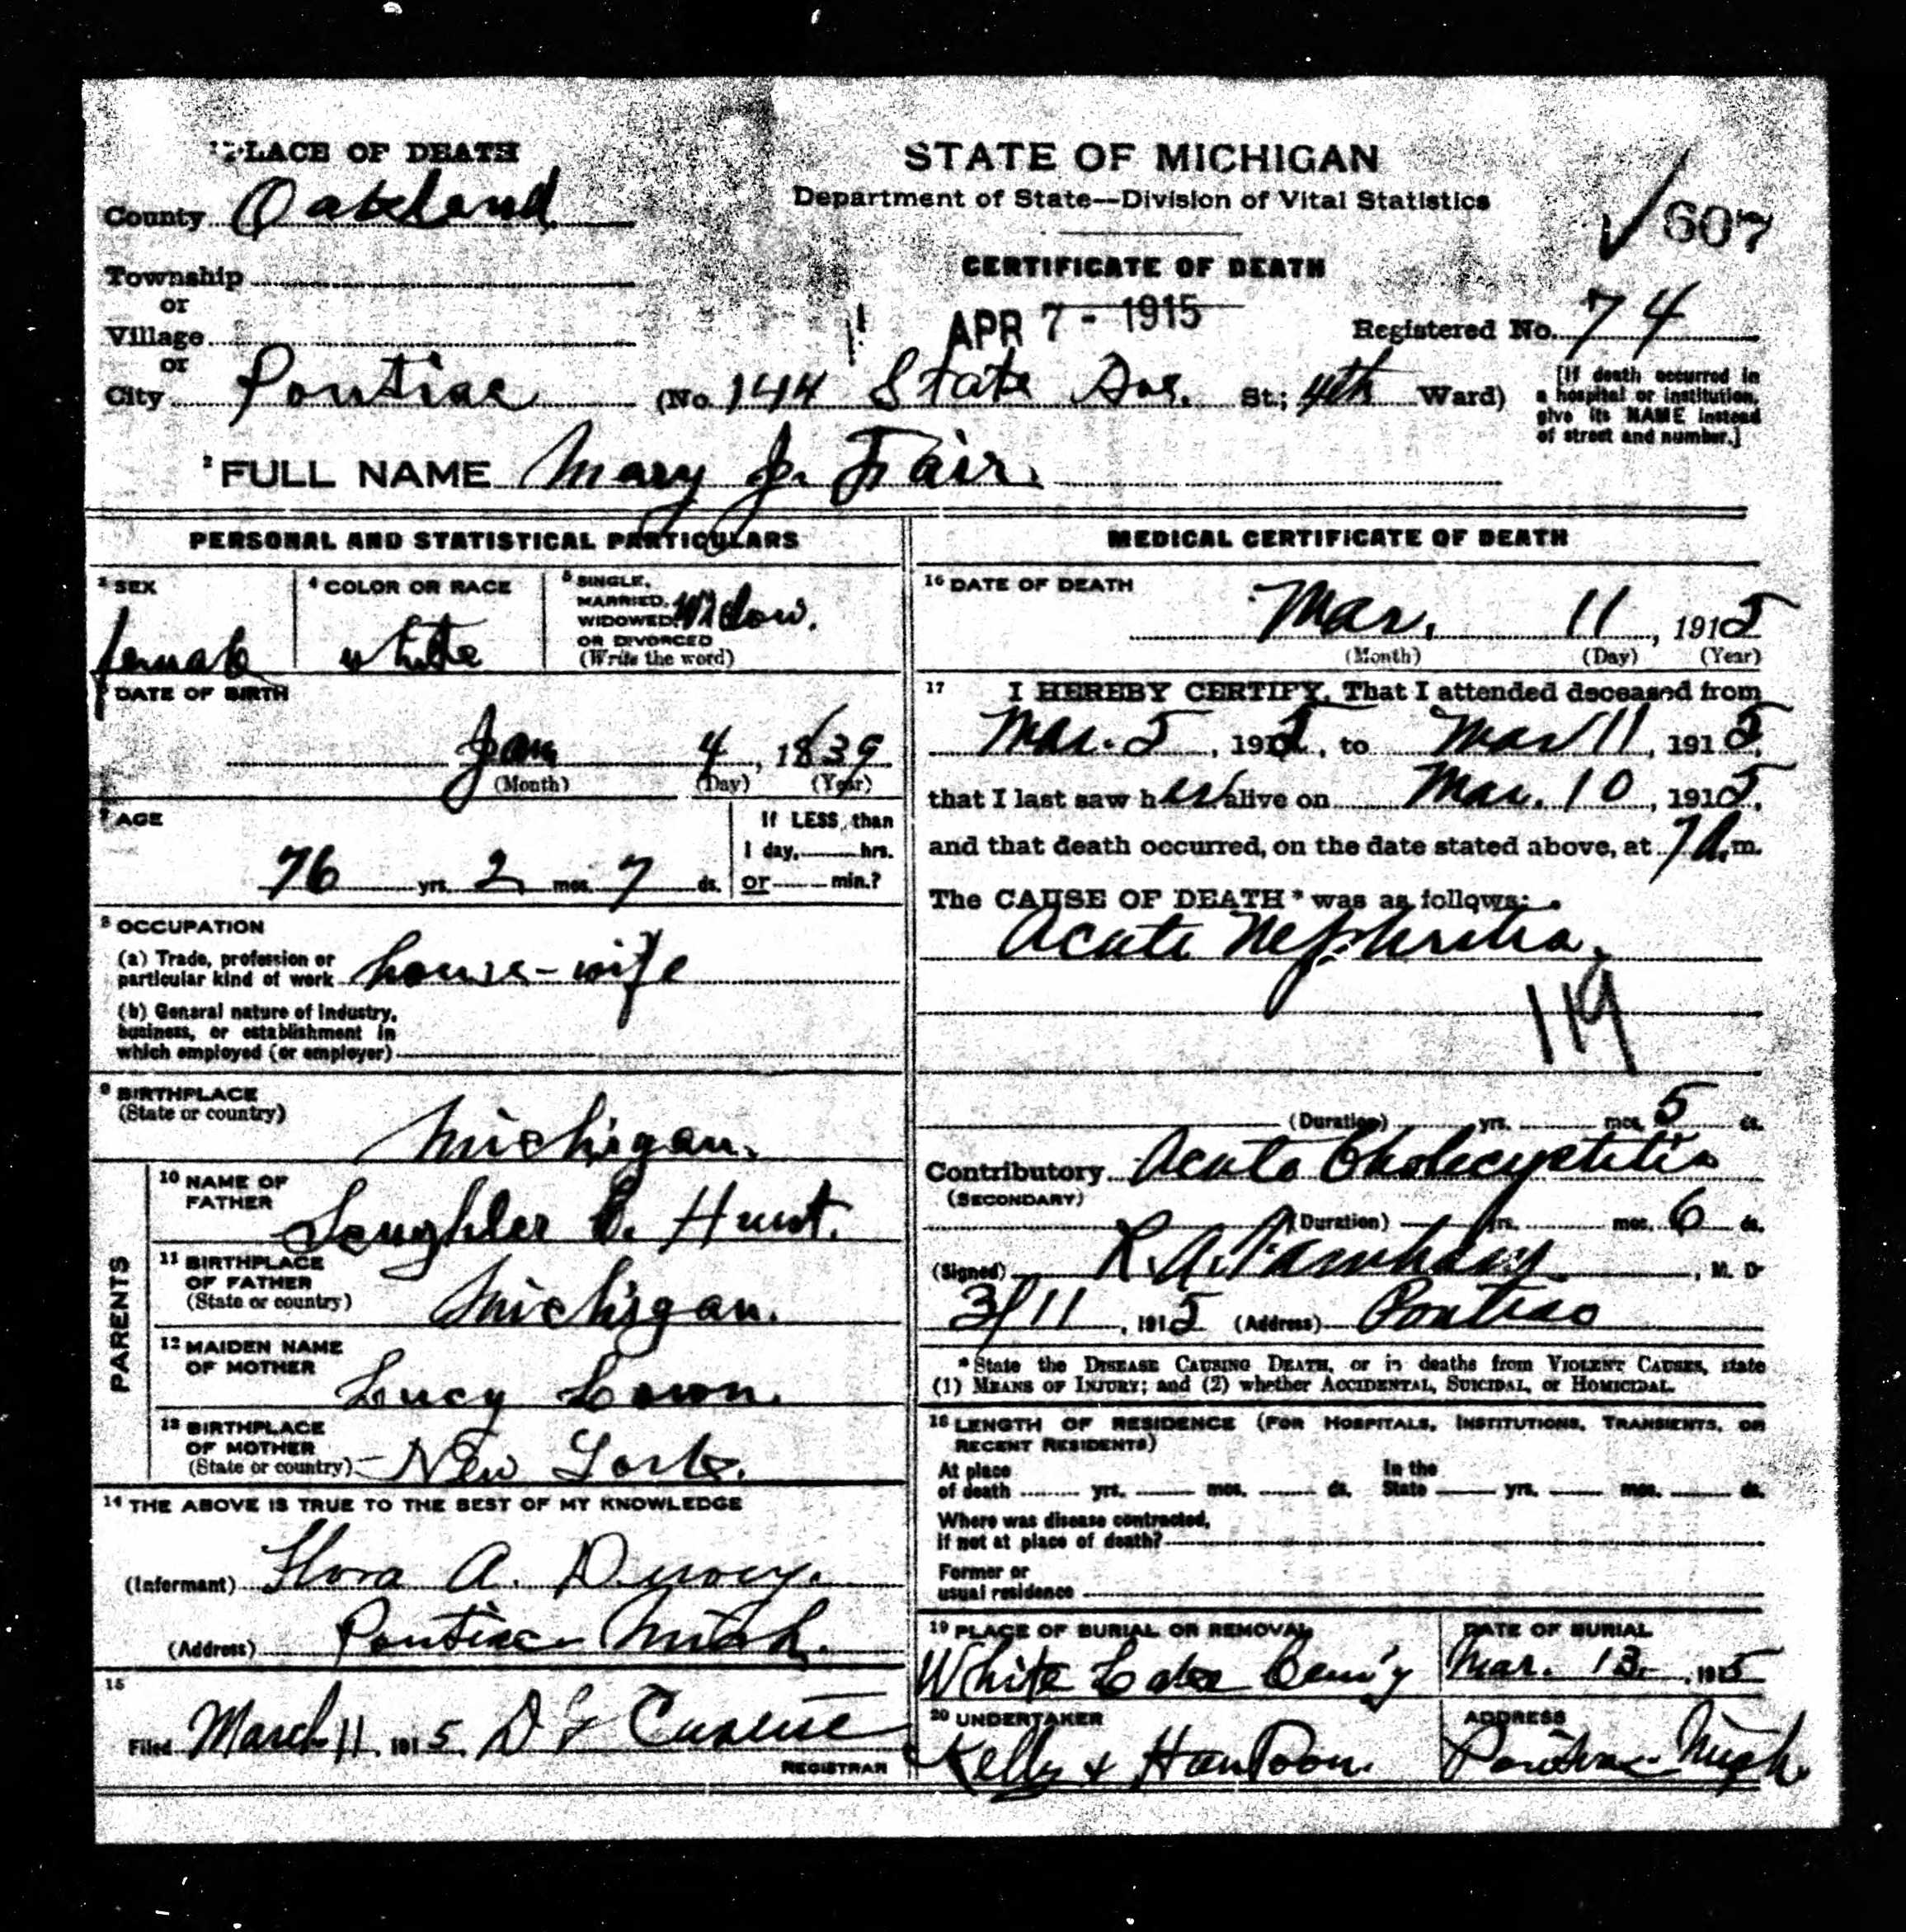 PLACE OF DEATH
County Oakland
Township
or
Village
or
City Pontiac (No 144 State Ave. St.; 4th Ward)
STATE OF MICHIGAN
Department of State—Division of Vital Statistics
607
CERTIFICATE OF DEATH
APR 7 - 1915
Registered No. 74
[If death occurred in
a hospital or institution,
give its NAME instead
of street and number.]
2 FULL NAME Mary J. Fair.
PERSONAL AND STATISTICAL PARTICULARS
3 SEX
female
4 COLOR OR RACE
white
5 SINGLE,
MARRIED,
WIDOWED, Widow.
OR DIVORCED
(Write the word)
DATE OF BIRTH
Jan 4, 1839
(Month) (Day) (Year)
7 AGE
76 yrs. 2 mos. 7 ds.
If LESS than
1 day, hrs.
or min.?
8 OCCUPATION
(a) Trade, profession or
particular kind of work house-wife
(b) General nature of industry,
business, or establishment in
which employed (or employer)
9 BIRTHPLACE
(State or country)
Michigan.
PARENTS
10 NAME OF
FATHER
E. Hunt.
11 BIRTHPLACE
OF FATHER
(State or country)
Michigan.
12 MAIDEN NAME
OF MOTHER
Lucy
13 BIRTHPLACE
OF MOTHER
(State or country) New York.
14 THE ABOVE IS TRUE TO THE BEST OF MY KNOWLEDGE
(Informant) Flora A.
(Address) Pontiac Mich.
15
Filed March 11, 1915
REGISTRAR
MEDICAL CERTIFICATE OF DEATH
16 DATE OF DEATH
Mar. 11, 1915
(Month) (Day) (Year)
17 I HEREBY CERTIFY, That I attended deceased from
Mar. 5, 1915, to Mar 11, 1915,
that I last saw her alive on Mar. 10, 1915,
and that death occurred, on the date stated above, at 7 A.m.
The CAUSE OF DEATH* was as follows:
Acute Nephritis,
119
(Duration) yrs. mos. 5 ds.
Contributory Acute Cholecystitis
(SECONDARY)
(Duration) yrs. mos. 6 ds.
(Signed) R. A. , M. D
3/11, 1915 (Address) Pontiac
*State the DISEASE CAUSING DEATH, or in deaths from VIOLENT CAUSES, state
(1) MEANS OF INJURY; and (2) whether ACCIDENTAL, SUICIDAL, or HOMICIDAL.
18 LENGTH OF RESIDENCE (FOR HOSPITALS, INSTITUTIONS, TRANSIENTS, OR
RECENT RESIDENTS)
At place
of death yrs. mos. ds.
In the
State yrs. mos. ds.
Where was disease contracted,
if not at place of death?
Former or
usual residence
19 PLACE OF BURIAL OR REMOVAL
White Lake Cem'y
DATE OF BURIAL
Mar. 13, 1915
20 UNDERTAKER
Kelly &
ADDRESS
Pontiac Mich.